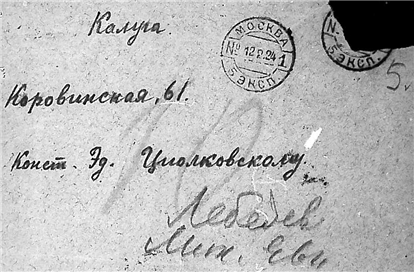 Калуга.
МОСКВА
№ 12.2.24 1
5 ЭКСП.
5 ЭКСП.
5.
Коровинская, 61.
Конст. Эд. Циолковскому.
10
Лебедев
Мит. Евг